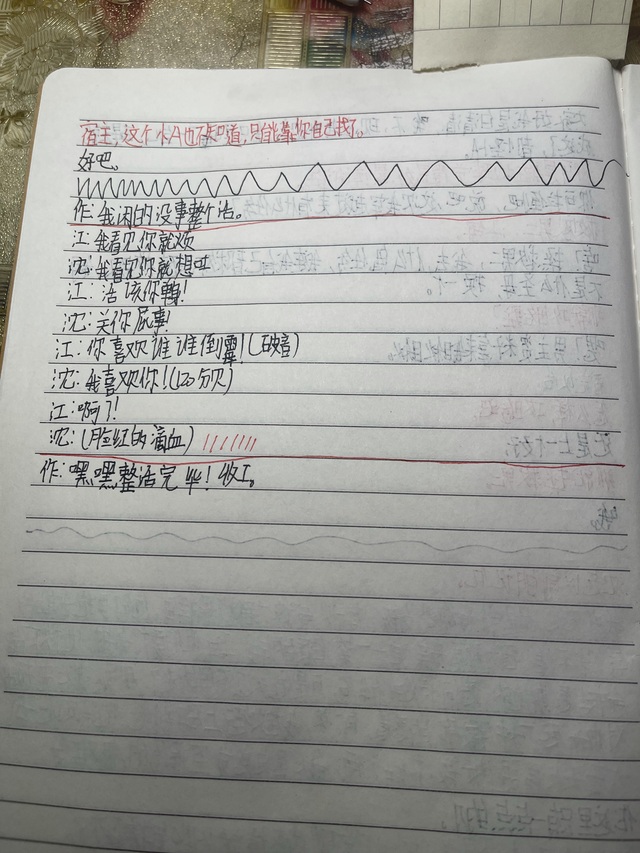 宿主,这个小A也不知道,只能靠你自己找了。
好吧。
作:我闲的没事整个活。
江:我看见你就烦
沈:我看见你就想吐
江:活该你鸭!
沈:关你屁事!
江:你喜欢谁谁倒霉!(破音)
沈:我喜欢你!(120分贝)
江:啊?!
沈:(脸红的滴血)
作:嘿嘿整活完毕!收工。